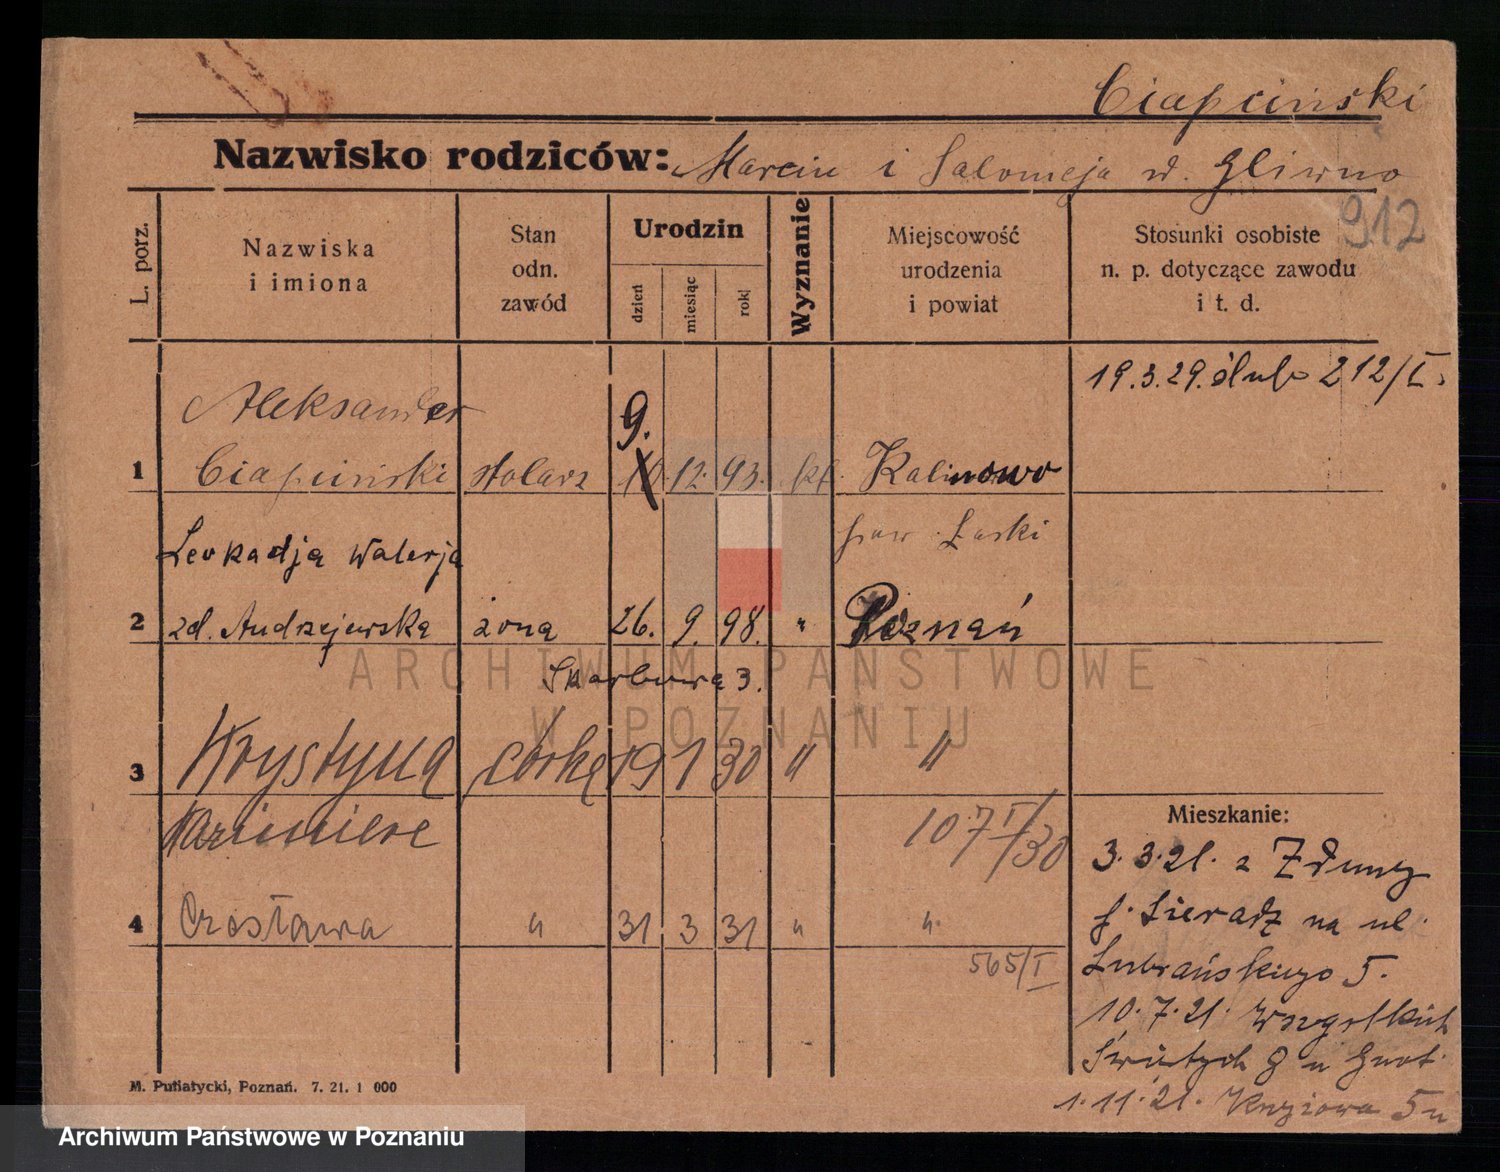 Ciapciński
Nazwisko rodziców: Marcin i Salomeja w. Gliwno
912
L. porz.
Nazwiska
i imiona
Stan
odn.
zawód
Urodzin
dzień
miesiąc
rok
Wyznanie
Miejscowość
urodzenia
i powiat
Stosunki osobiste
n. p. dotyczące zawodu
i t. d.
19.3.29. ślub 212/I.
Aleksander
9.
1 Ciapciński stolarz 10. 12. 93. kt. Kalinowo
pow. Łaski
Leokadja Walerja
2 zd. Andrzejewska żona 26. 9. 98. " Poznań
Skarbowa 3.
3 Krystyna córka 19 1 30 " "
Kazimiera
107 I/30
4 Czesława " 31 3 31 " "
565/I
Mieszkanie:
3.3.21. z Zduny
p. Sieradz na ul.
Lubrańskiego 5.
10.7.21. Wszystkich
Świętych 8 u Gnot.
1.11.21. Krzyżowa 5 u
M. Putiatycki, Poznań. 7. 21. 1 000
ARCHIWUM PAŃSTWOWE
W POZNANIU
Archiwum Państwowe w Poznaniu